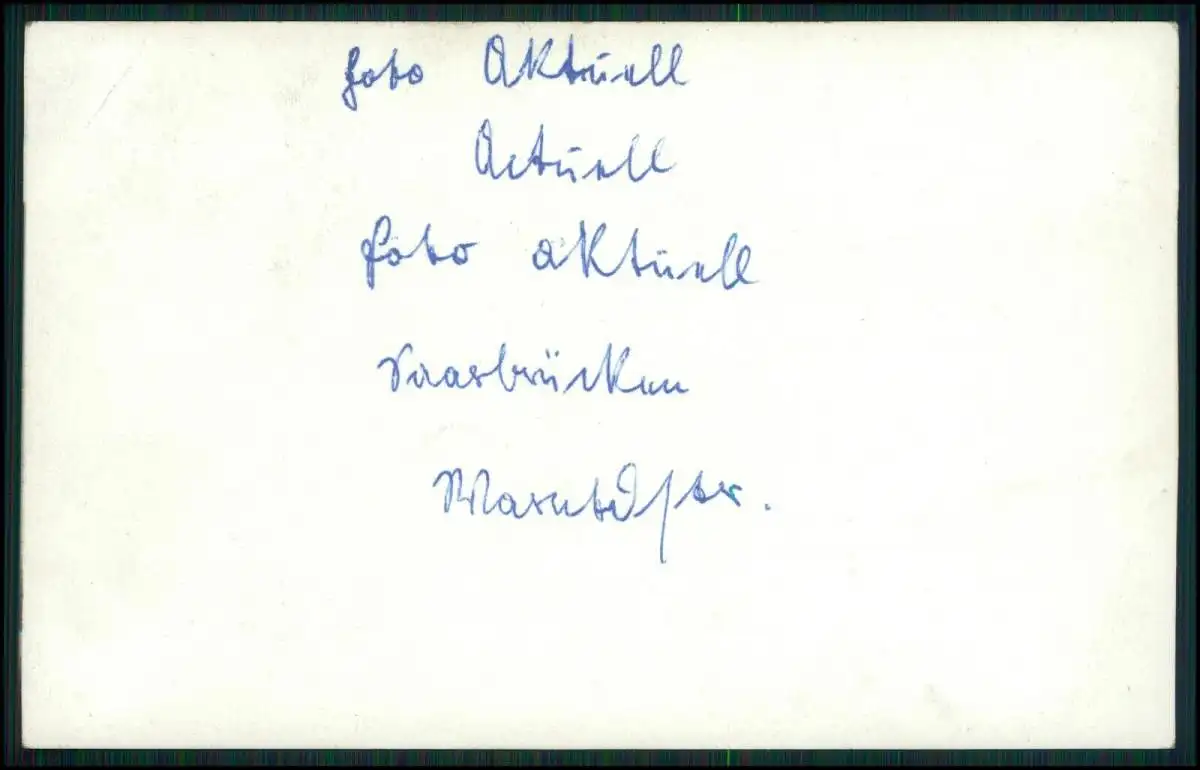 foto Aktuell
Actuell
foto aktuell
Saarbrücken
Warndtstr.